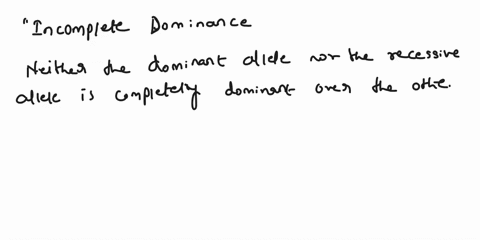 "Incomplete Dominance
Neither the dominant allele nor the recessive
allele is completely dominant over the othe.